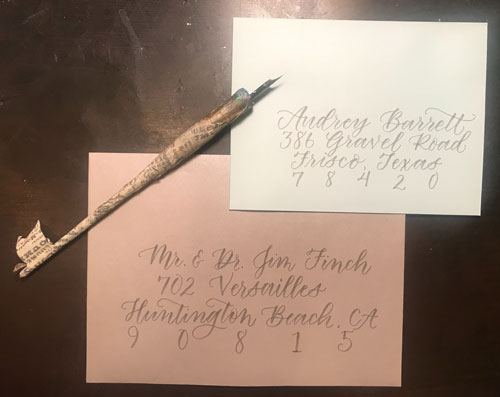 Audrey Barrett
386 Gravel Road
Frisco, Texas
7 8 4 2 0
Mr. & Dr. Jim Finch
702 Versailles
Huntington Beach, CA
9 0 8 1 5